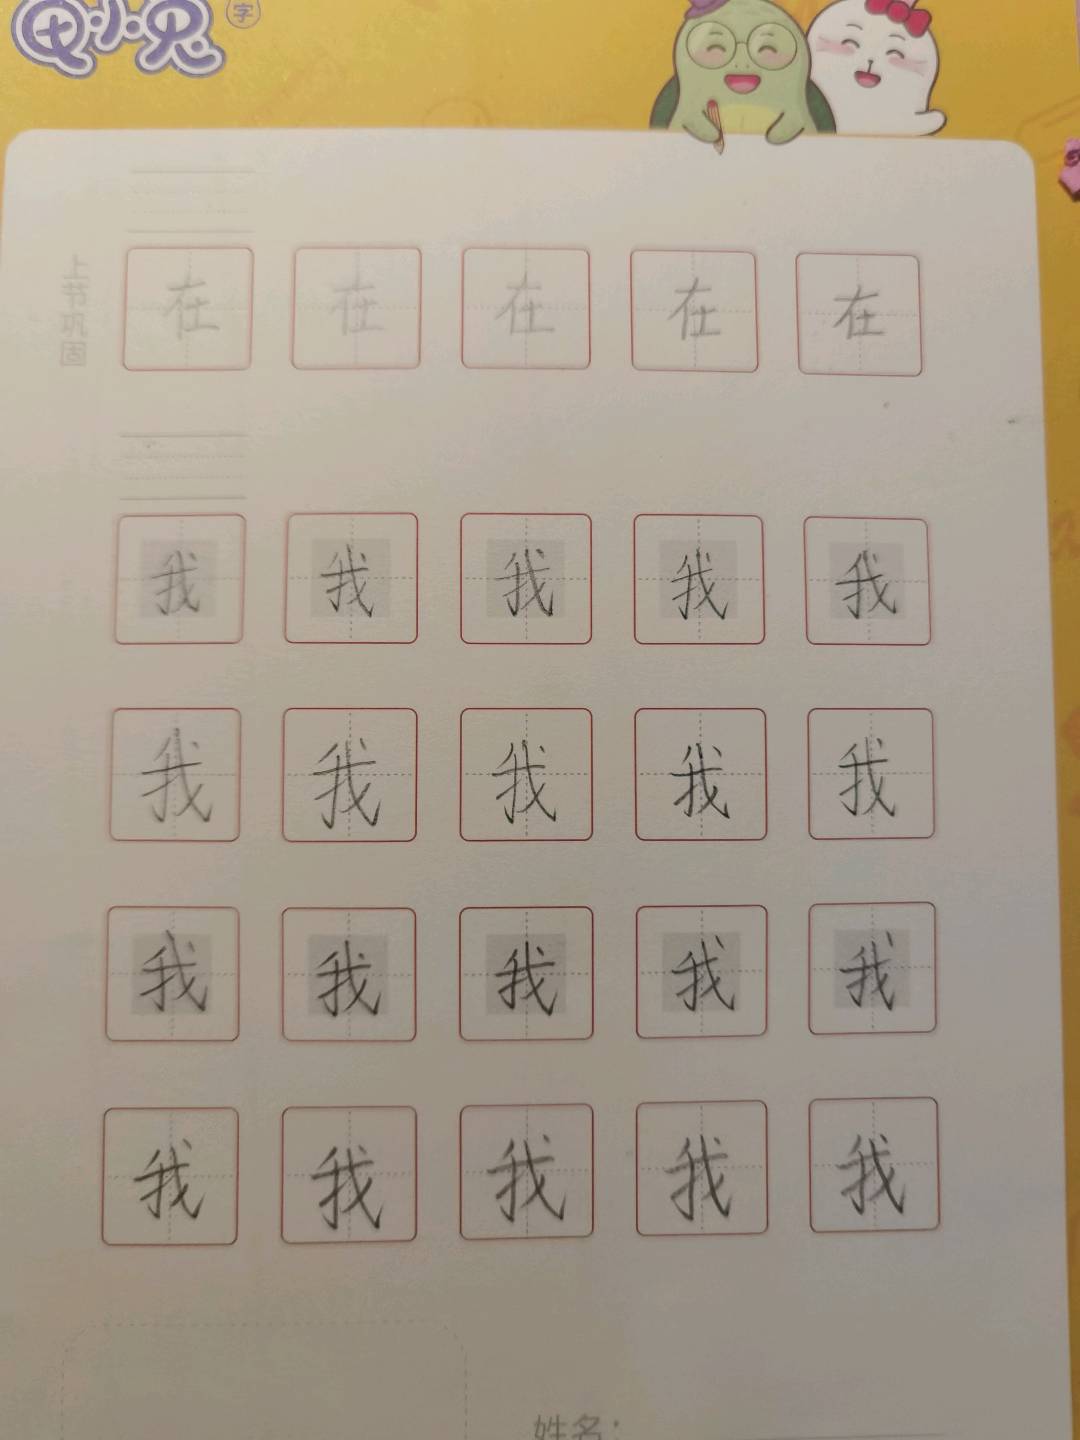 字
上节巩固
在 在 在 在 在
我 我 我 我 我
我 我 我 我 我
我 我 我 我 我
我 我 我 我 我
姓名：